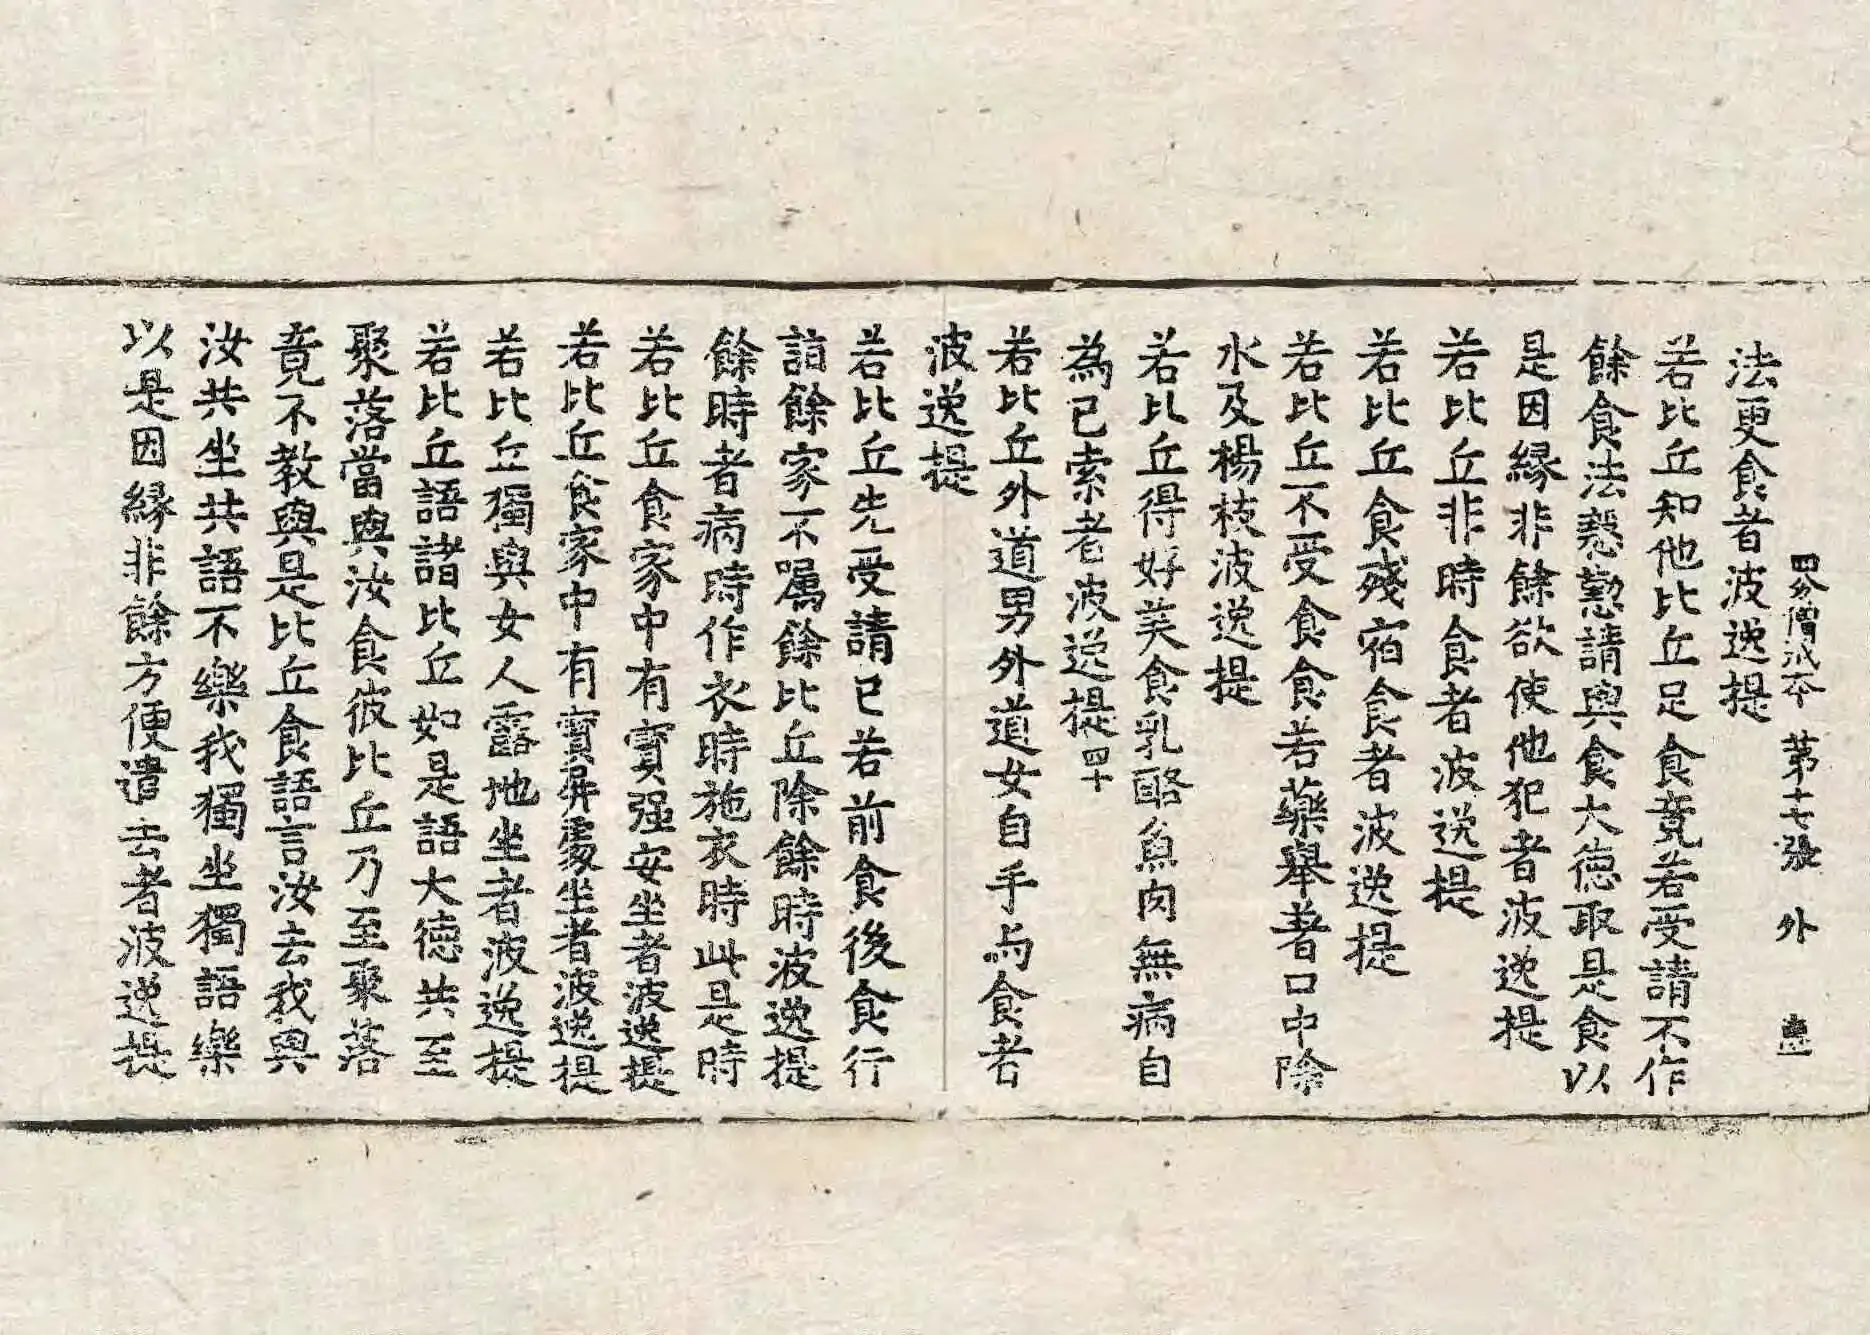 四分僧戒本 第十七張 外
法更食者波逸提
若比丘知他比丘足食竟若受請不作
餘食法慇懃請與食大德取是食以
是因緣非餘欲使他犯者波逸提
若比丘非時食者波逸提
若比丘食殘宿食者波逸提
若比丘不受食食若藥舉著口中除
水及楊枝波逸提
若比丘得好美食乳酪魚肉無病自
為已索者波逸提四十
若比丘外道男外道女自手与食者
波逸提
若比丘先受請已若前食後食行
詣餘家不囑餘比丘除餘時波逸提
餘時者病時作衣時施衣時此是時
若比丘食家中有寳强安坐者波逸提
若比丘食家中有寳屏處坐者波逸提
若比丘獨與女人露地坐者波逸提
若比丘語諸比丘如是語大德共至
聚落當與汝食彼比丘乃至聚落
竟不教與是比丘食語言汝去我與
汝共坐共語不樂我獨坐獨語樂
以是因緣非餘方便遣去者波逸提